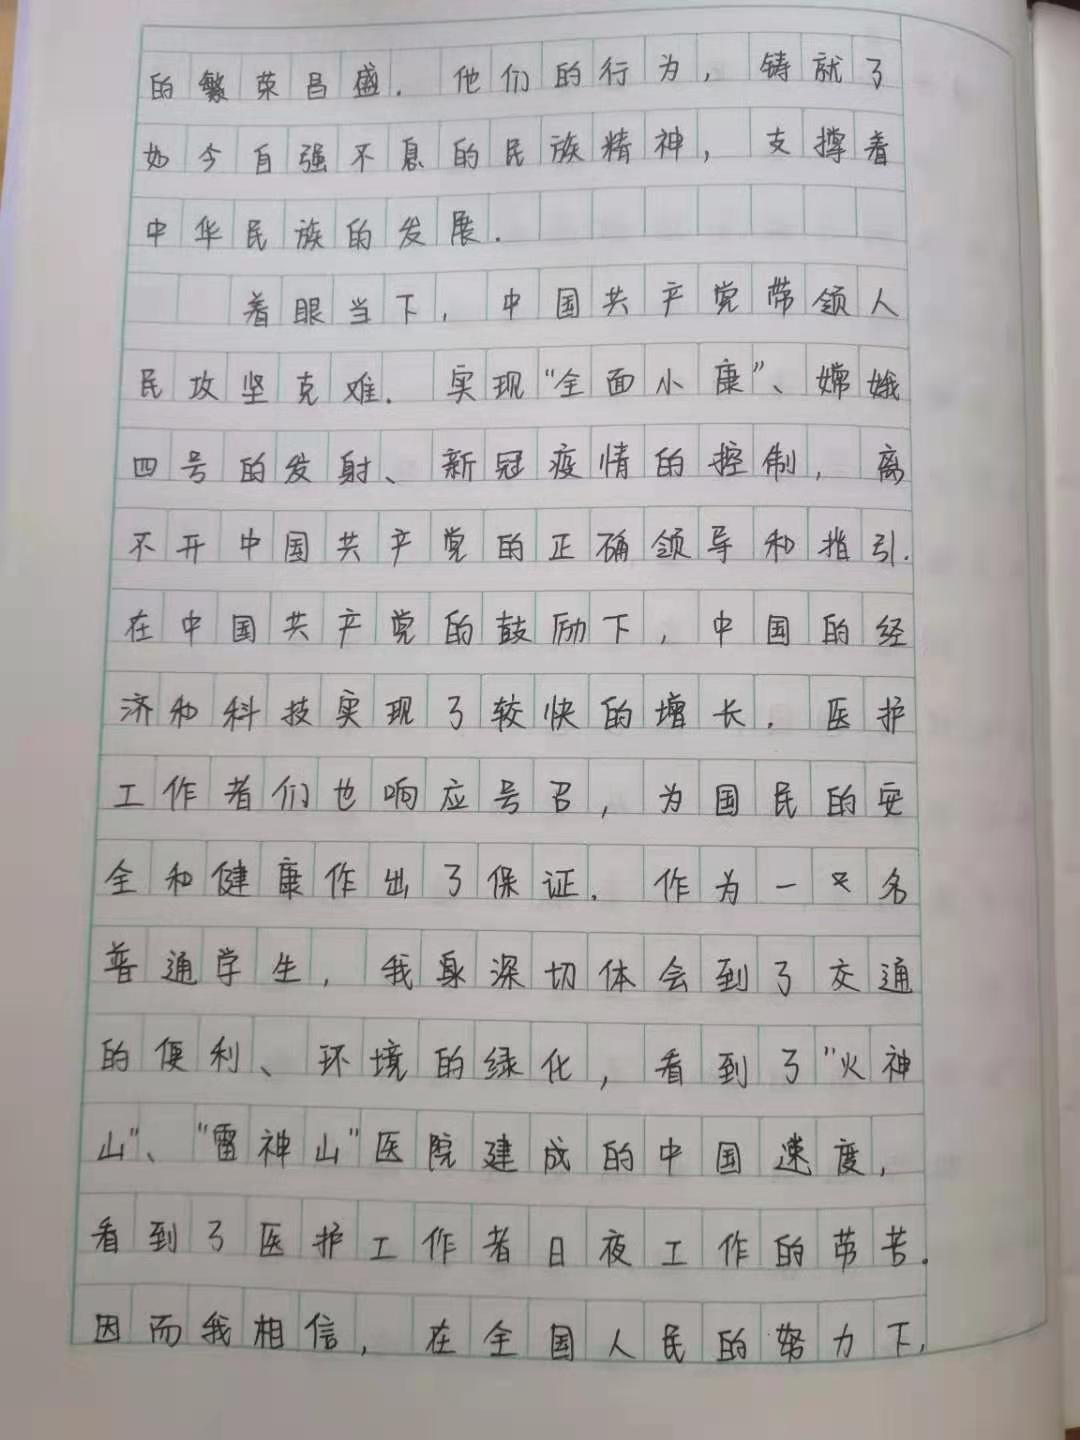 的繁荣昌盛.他们的行为,铸就了
如今自强不息的民族精神,支撑着
中华民族的发展.
着眼当下,中国共产党带领人
民攻坚克难.实现“全面小康”、嫦娥
四号的发射、新冠疫情的控制,离
不开中国共产党的正确领导和指引.
在中国共产党的鼓励下,中国的经
济和科技实现了较快的增长.医护
工作者们也响应号召,为国民的安
全和健康作出了保证.作为一只名
普通学生,我身深切体会到了交通
的便利、环境的绿化,看到了“火神
山”、“雷神山”医院建成的中国速度,
看到了医护工作者日夜工作的劳苦.
因而我相信,在全国人民的努力下,